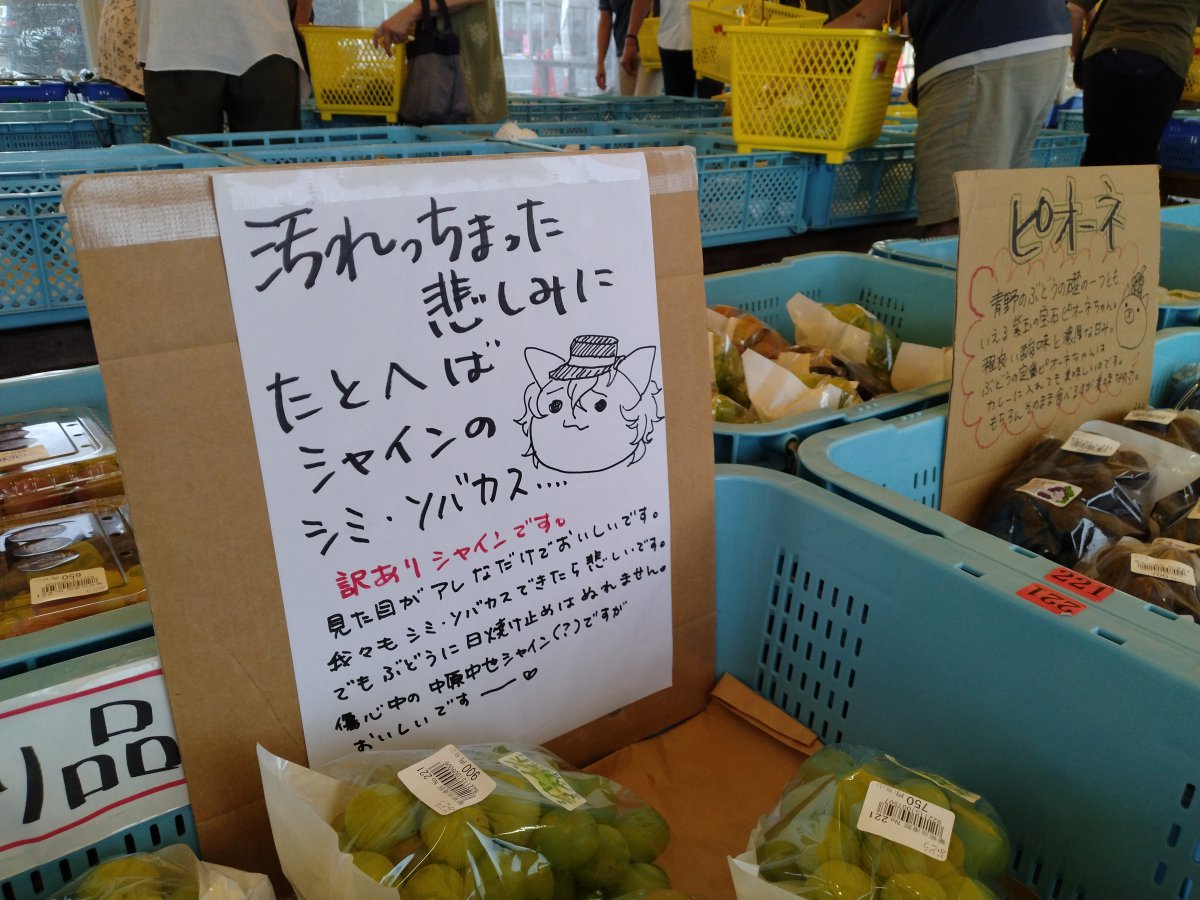 汚れっちまった
悲しみに
たとへば
シャインの
シミ・ソバカス‥‥
訳ありシャインです。
見た目がアレなだけでおいしいです。
我々もシミ・ソバカスできたら悲しいです。
でもぶどうに日焼け止めはぬれません。
傷心中の中原中也シャイン(?)ですが
おいしいです━♡
ピオーネ
青野のぶどうの顔の一つとも
いえる紫玉の宝石ピオーネちゃん。
程良い酸味と濃厚な甘み。
ぶどうの定番ピオーネちゃんは
カレーに入れても美味しいのです。
もちろんそのまま食べますが美味なのさ。
り品
650
221
900
No.221
750
221
221